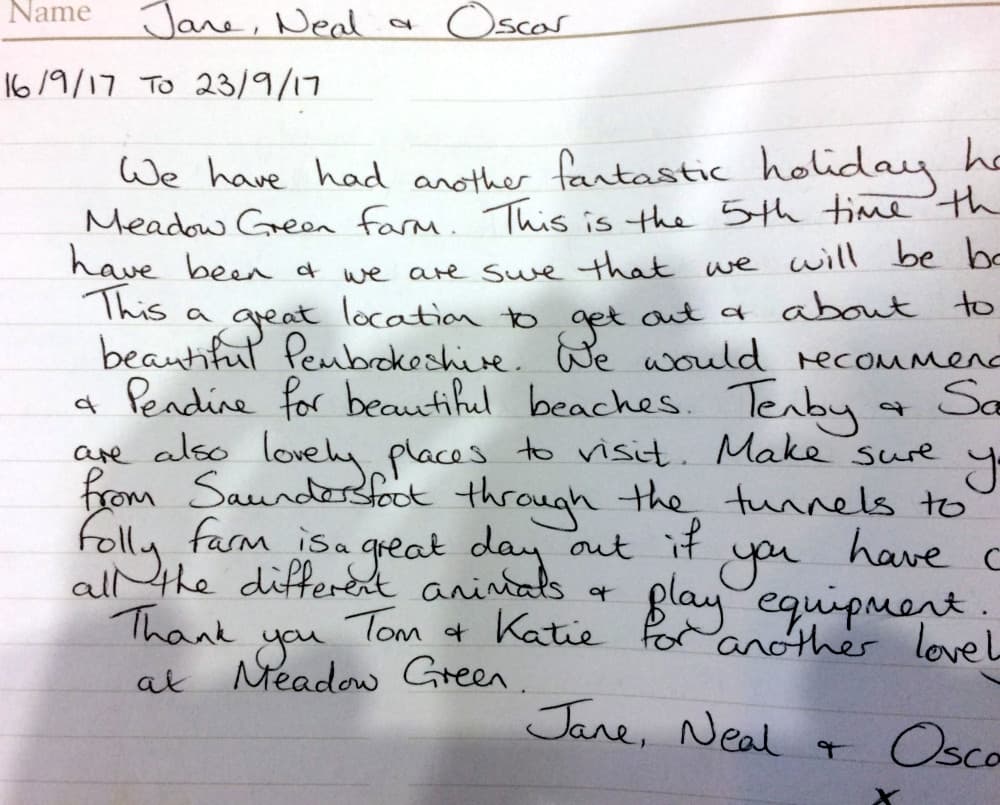 Name Jane, Neal & Oscar
16/9/17 TO 23/9/17
We have had another fantastic holiday
Meadow Green Farm. This is the 5th time
have been & we are sure that we will be
This a great location to get out & about to
beautiful Pembrokeshire. We would recommend
& Pendine for beautiful beaches. Tenby &
are also lovely places to visit. Make sure
from Saundersfoot through the tunnels to
Folly Farm is a great day out if you have
all the different animals & play equipment.
Thank you Tom & Katie for another lovel
at Meadow Green.
Jane, Neal & Osca
x